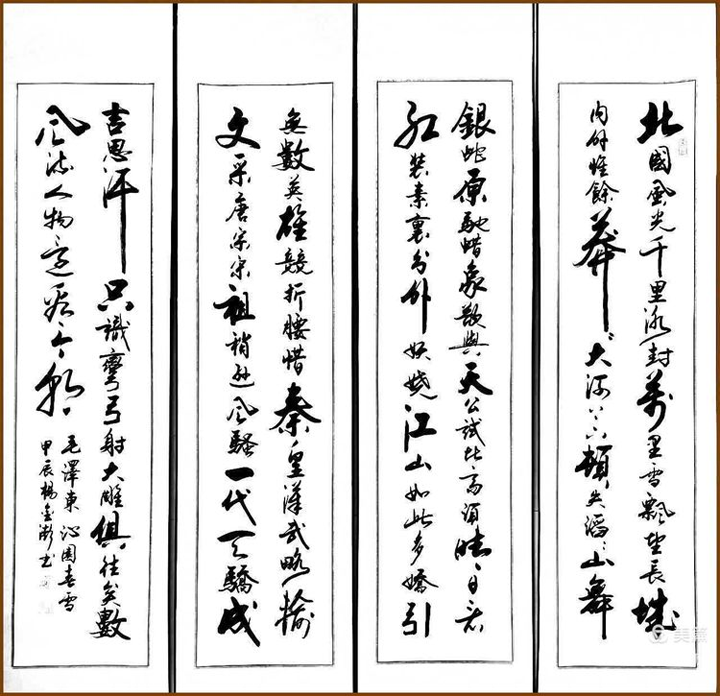 北國風光千里冰封萬里雪飄望長城
内外惟餘莽〻大河上下頓失滔〻山舞
銀蛇原馳蜡象欲與天公試比高須晴日看
紅裝素裹分外妖嬈江山如此多嬌引
無數英雄競折腰惜秦皇漢武略輸
文采唐宗宋祖稍遜風騷一代天驕成
吉思汗只識彎弓射大雕俱往矣數
風流人物還看今朝
毛澤東沁園春雪
甲辰楊金书
美篇